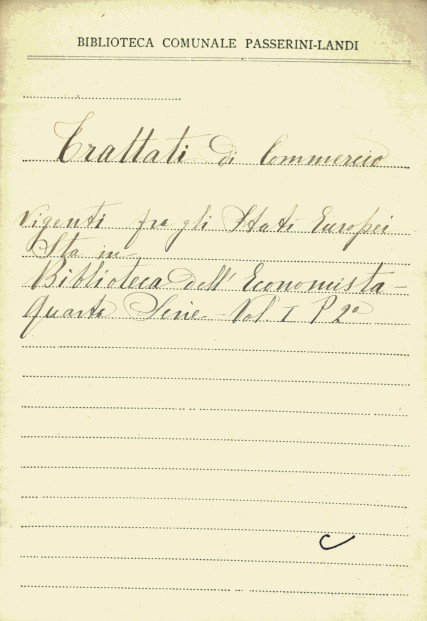 BIBLIOTECA COMUNALE PASSERINI-LANDI
Trattati di Commercio
vigenti fra gli Stati Europei
Sta in
Biblioteca dell' Economista -
Quarta Serie - Vol. I P 2ª